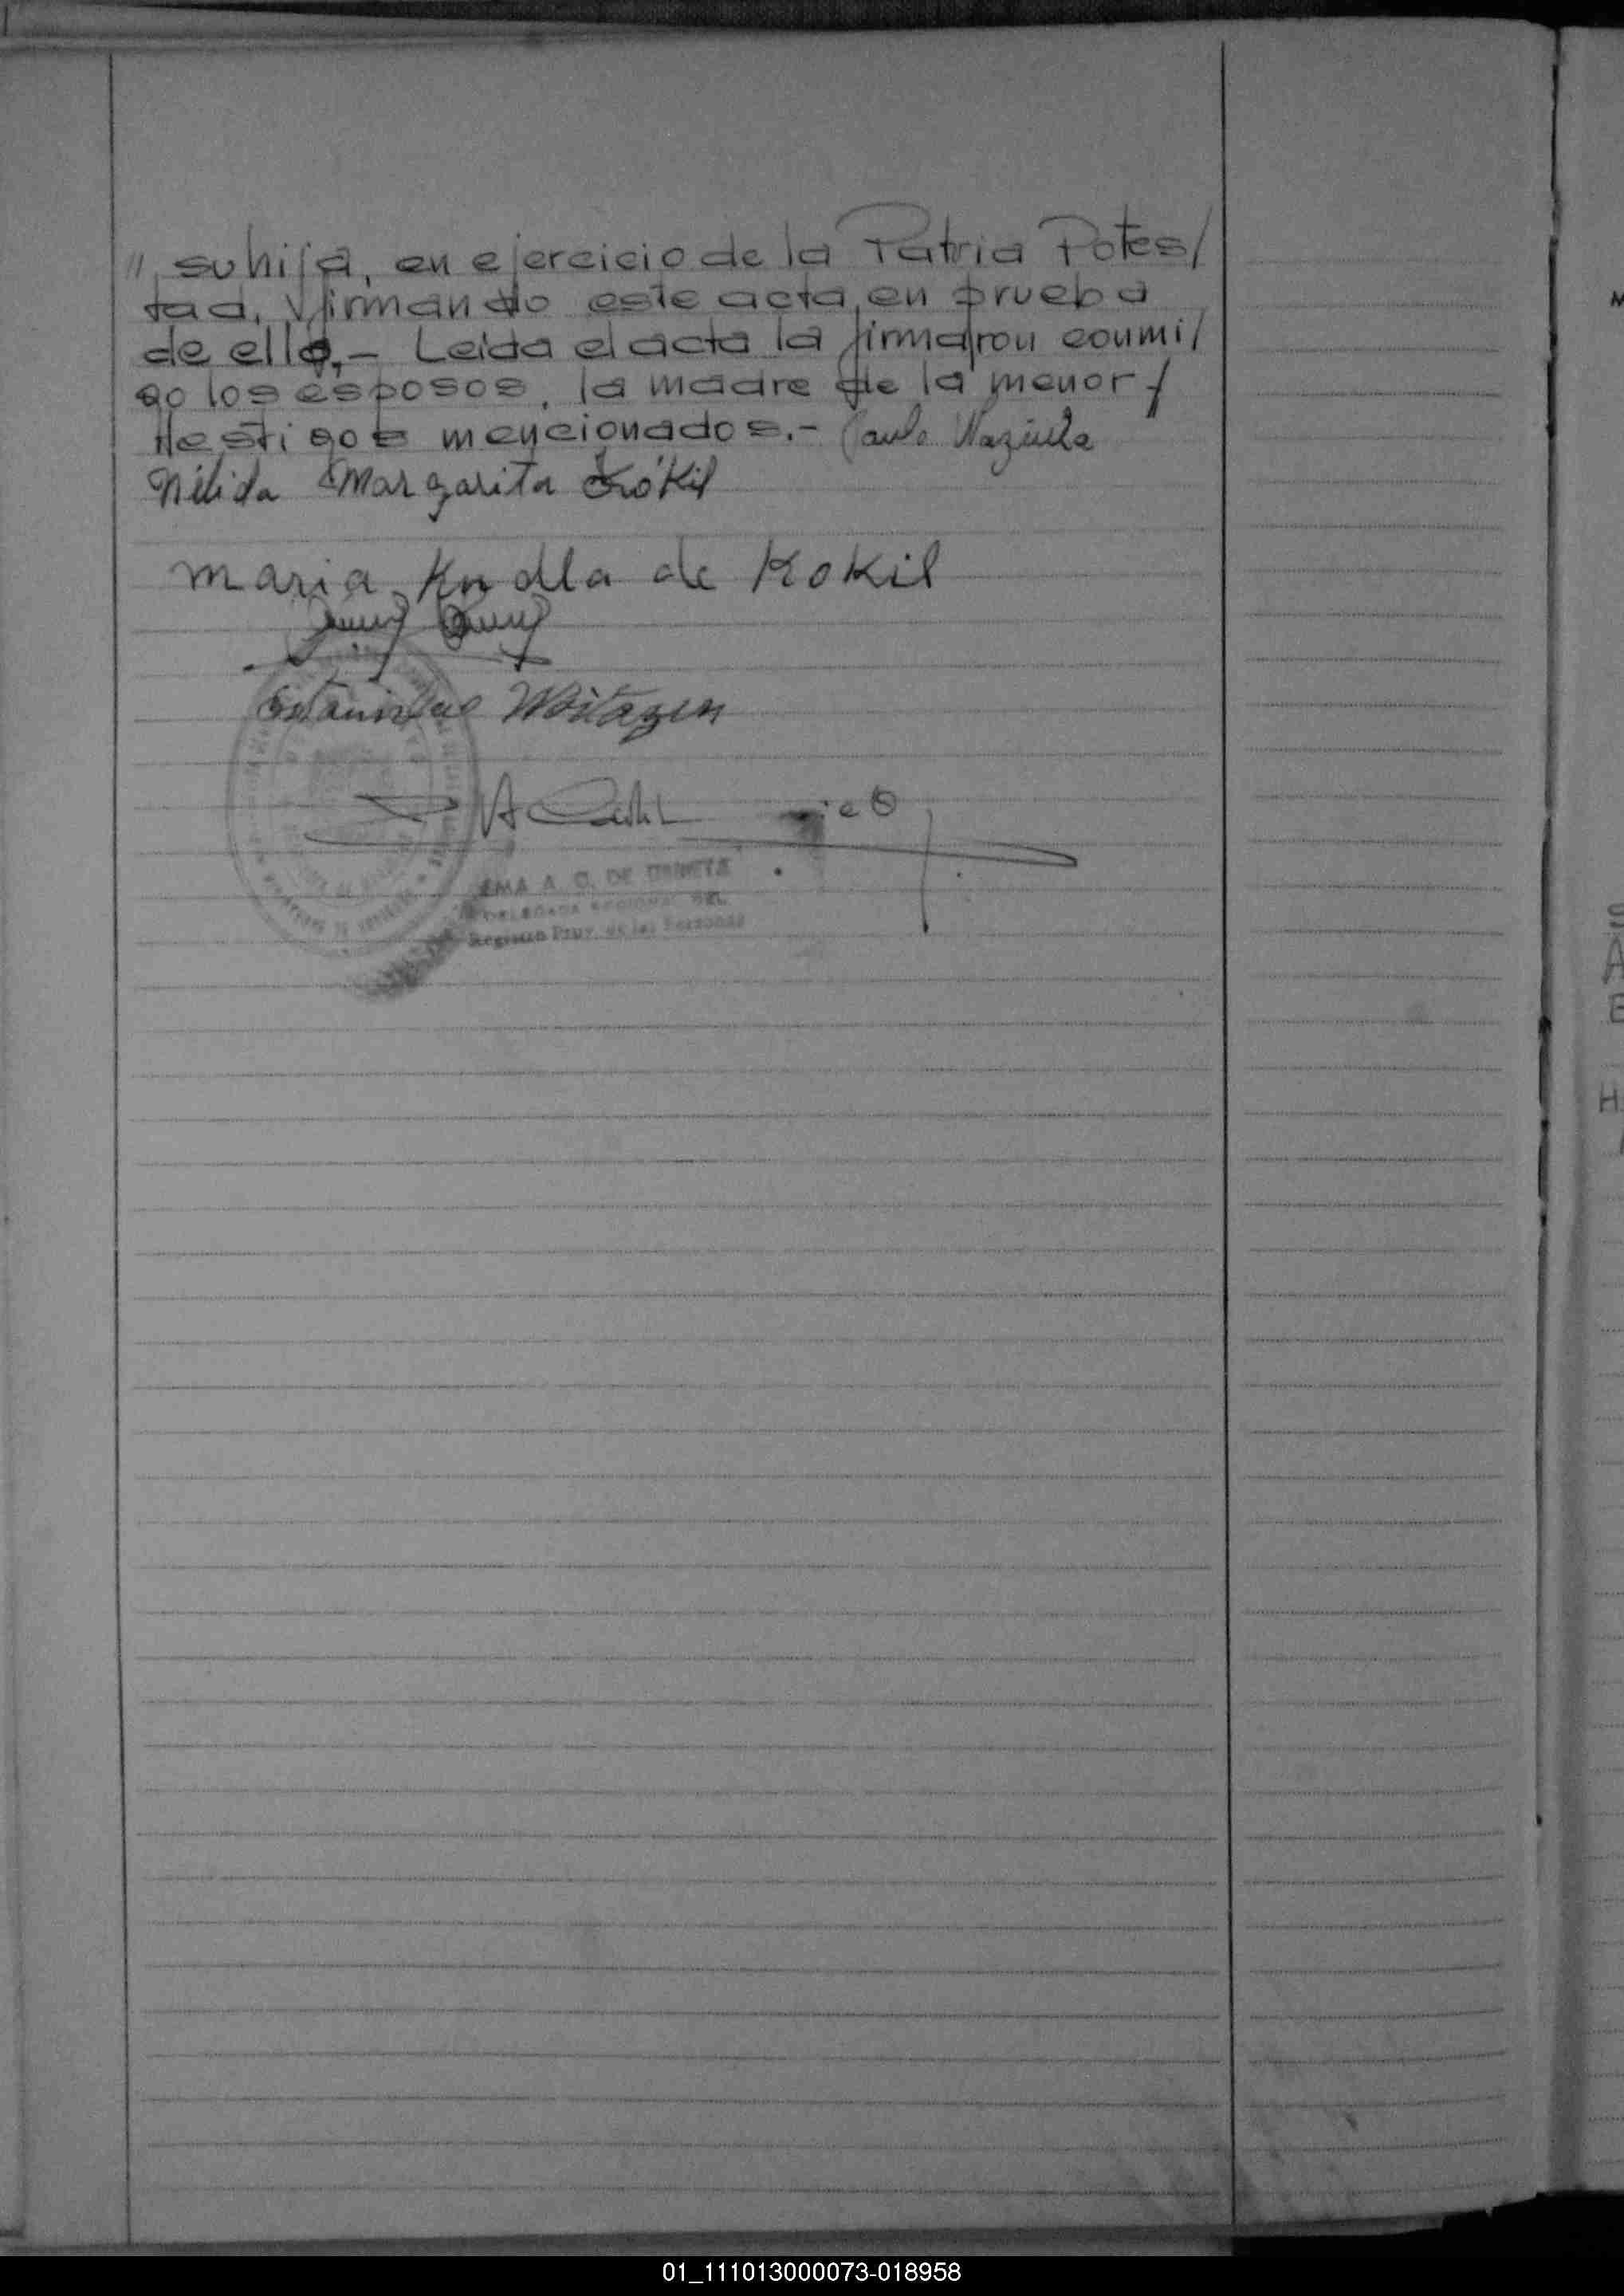 " su hija, en ejercicio de la Patria Potes/
tad, firmando este acta, en prueba
de ello,- Leida el acta la firmaron conmi/
go los esposos, la madre de la menor y
testigos mencionados.- Paulo
Nélida Margarita Kokil
Maria de Kokil
Estanislao
EMA A. C. DE URRETA
DELEGADA REGIONAL DEL
Registro Prov. de las Personas
01_111013000073-018958